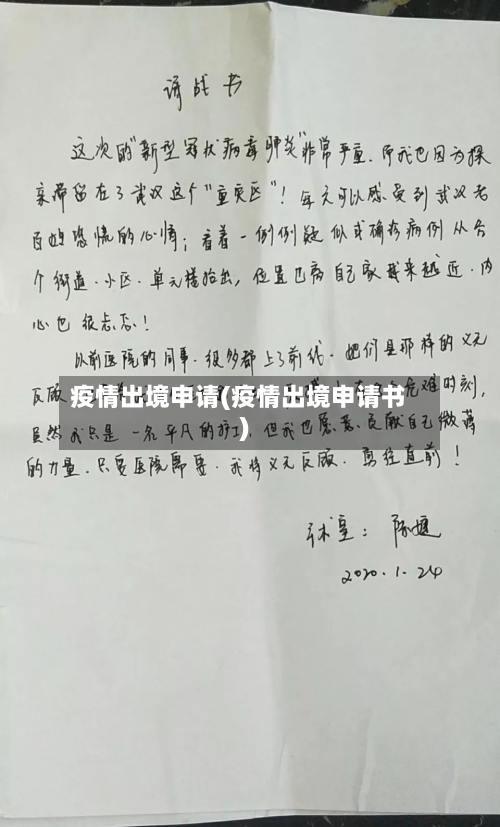 请战书
这次的"新型冠状病毒肺炎"非常严重.而我也因为探
亲滞留在了武汉这个"重灾区"！每天可以感受到武汉老
百姓恐慌的心情；看着一例例疑似或确诊病例从各
个街道.小区.单元楼抬出,位置也离自己家越来越近.内
心也很忐忑！
以前医院的同事.很多都上了前线.她们是那样的义无
反顾
危难时刻,
疫情出境申请(疫情出境申请书
)
虽然我只是一名平凡的护工,但我也愿意贡献自己微薄
的力量.只要医院需要.我将义无反顾.勇往直前！
2020.1.24